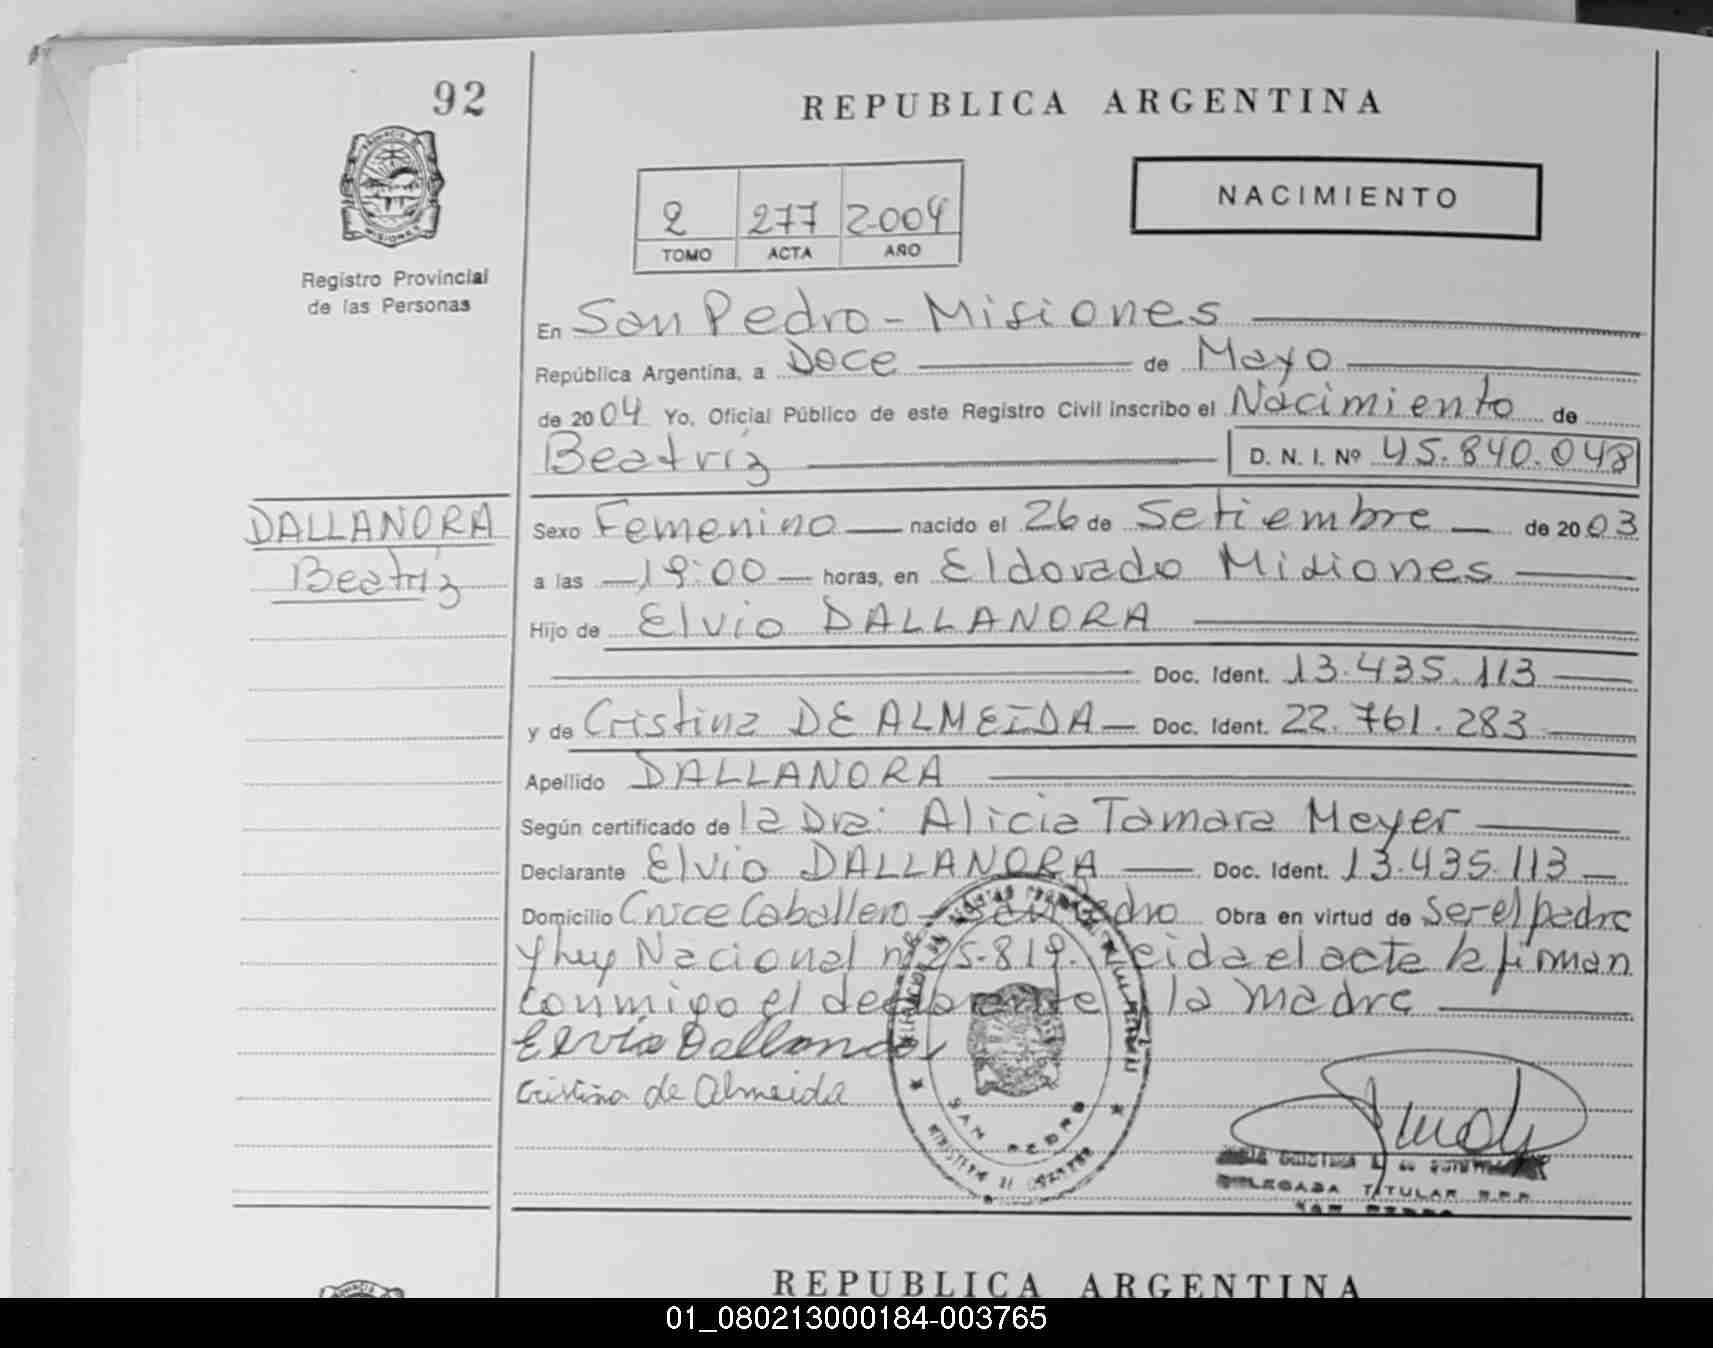 92
REPUBLICA ARGENTINA
NACIMIENTO
2 277 2004
TOMO ACTA AÑO
Registro Provincial
de las Personas
En San Pedro - Misiones
República Argentina, a Doce de Mayo
de 2004 Yo, Oficial Público de este Registro Civil inscribo el Nacimiento de
Beatríz D. N. I. Nº 45.840.048
DALLANORA
Beatríz
Sexo Femenino nacido el 26 de Setiembre de 2003
a las 19:00 horas, en Eldorado Misiones
Hijo de Elvio DALLANORA
Doc. Ident. 13.435.113
y de Cristina DE ALMEIDA Doc. Ident. 22.761.283
Apellido DALLANORA
Según certificado de la Dra: Alicia Tamara Meyer
Declarante Elvio DALLANORA Doc. Ident. 13.435.113
Domicilio Cruce Caballero - San Pedro Obra en virtud de Ser el padre
y ley Nacional nº 25.819. Leida el acta la firman
conmigo el declarante la madre
Elvio Dallanora
Cristina de Almeida
SAN PEDRO
DELEGADA TITULAR R.P.P.
SAN PEDRO
REPUBLICA ARGENTINA
01_080213000184-003765